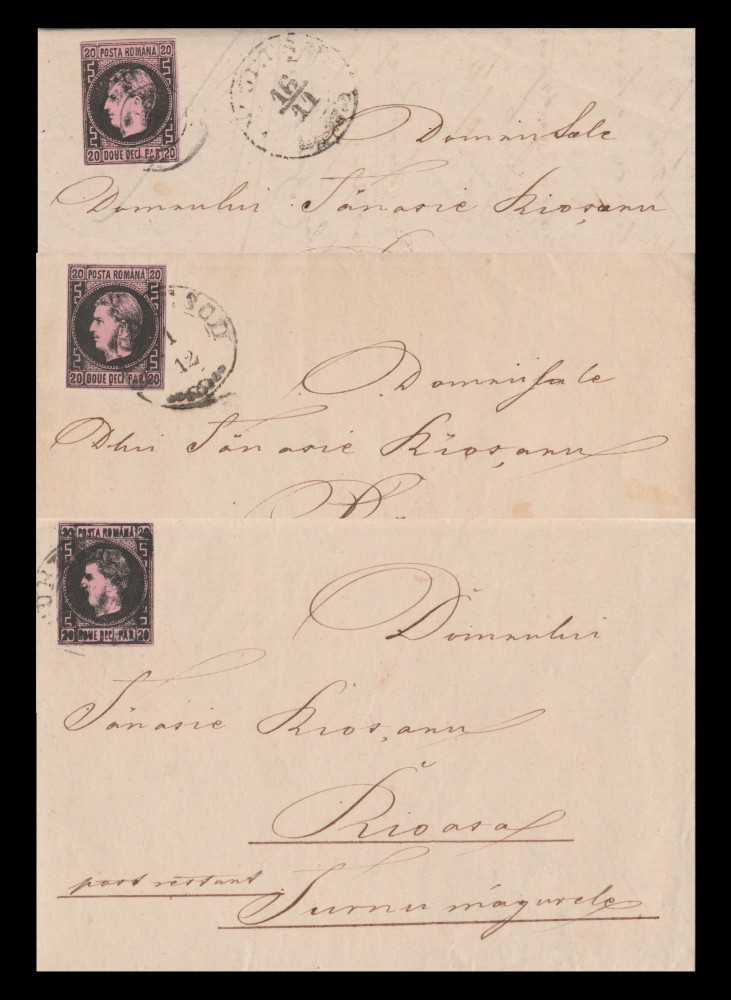 20 POSTA ROMANĂ 20
20 DOUE DECI PAR 20
16
11
DomnuiSale
Domnului Tănasie Kioșanu
20 POSTA ROMANĂ 20
20 DOUE DECI PAR 20
1
12
DomniiSale
Dlui Tănasie Kioșanu
20 POSTA ROMANĂ 20
20 DOUE DECI PAR 20
Domnului
Tănasie Kioșanu
Kioasa
post restant
Turnu măgurele